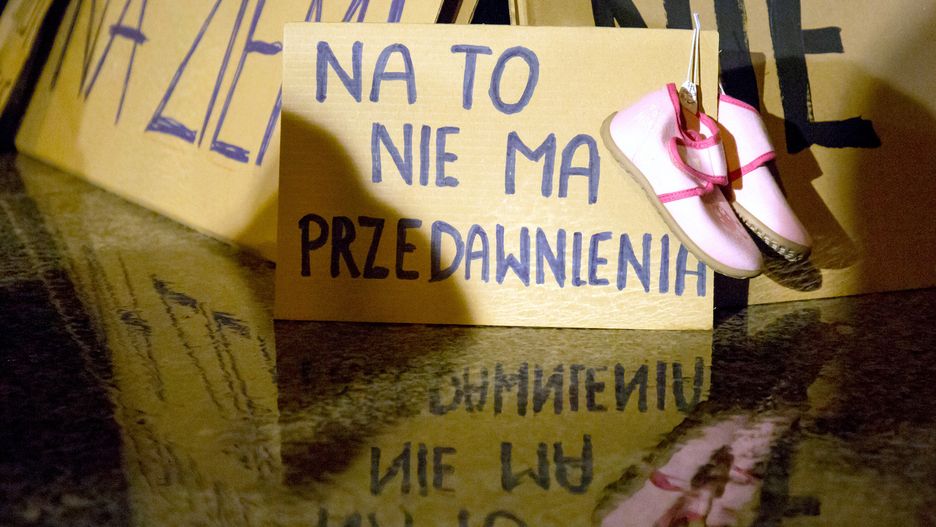 NA ZIEM
NA TO
NIE MA
PRZEDAWNIENIA
NIE